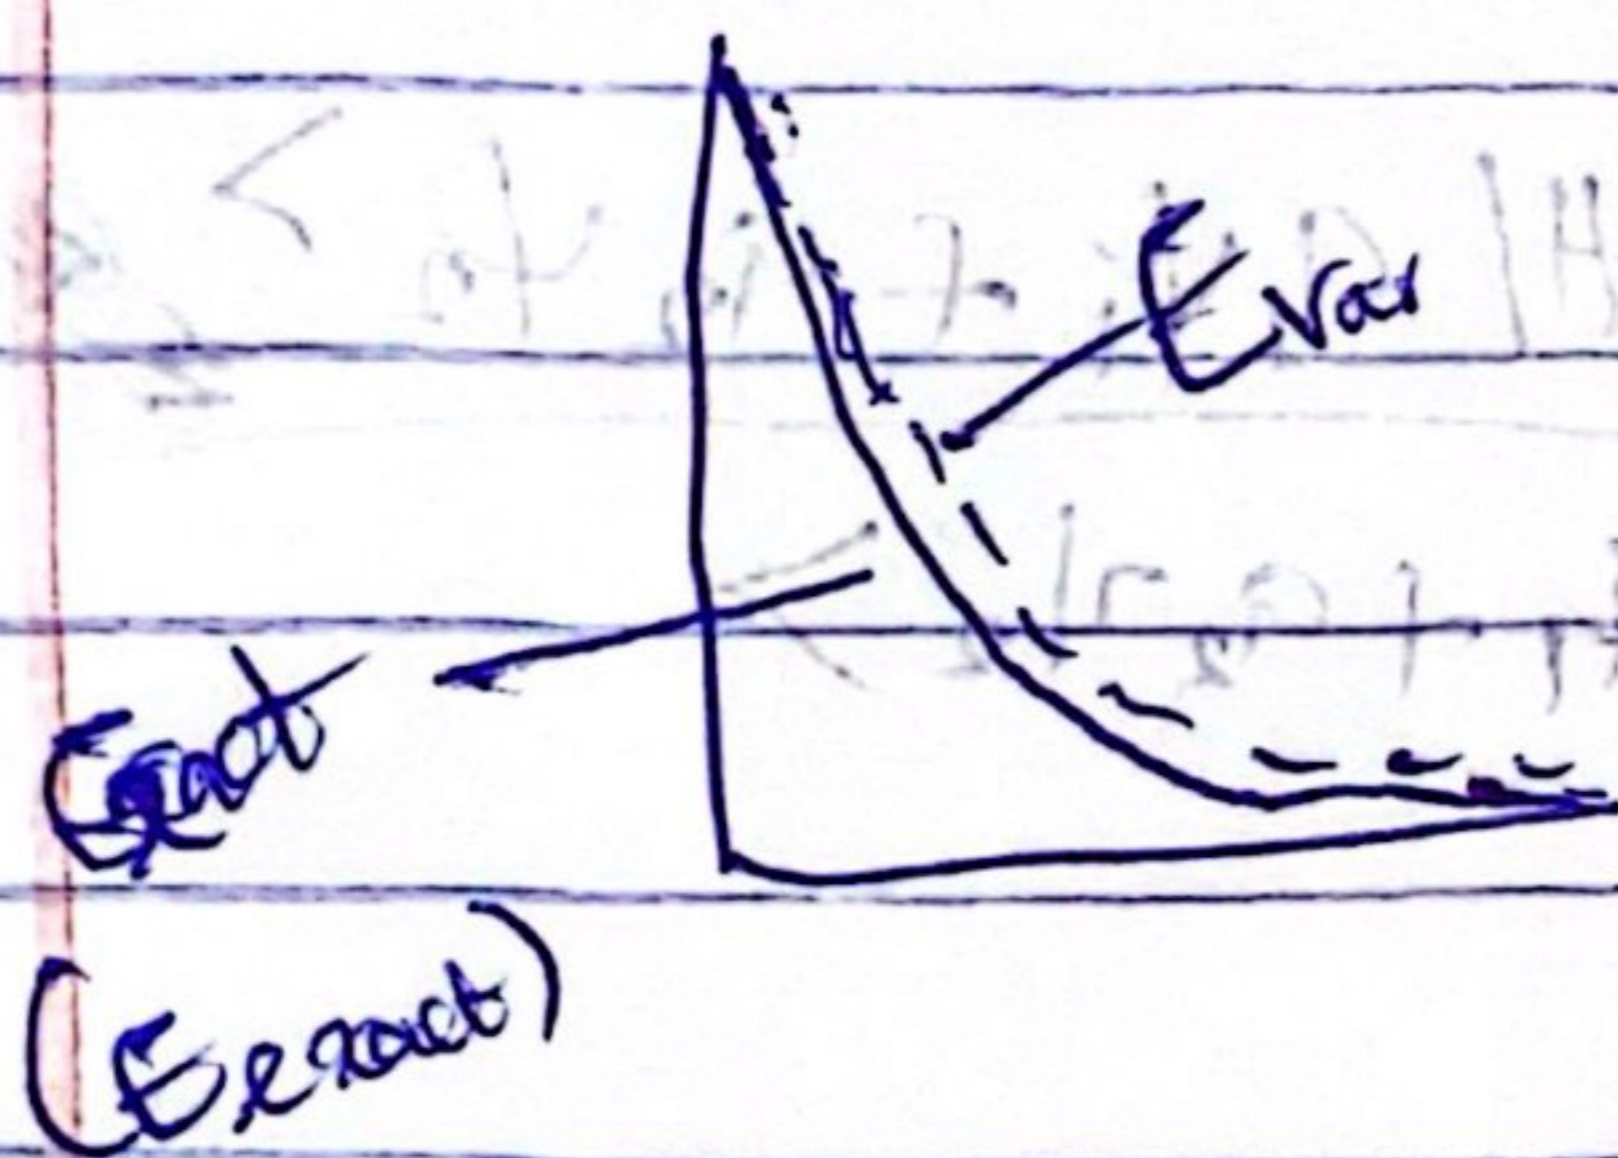 Evar
Exact
(Eexact)